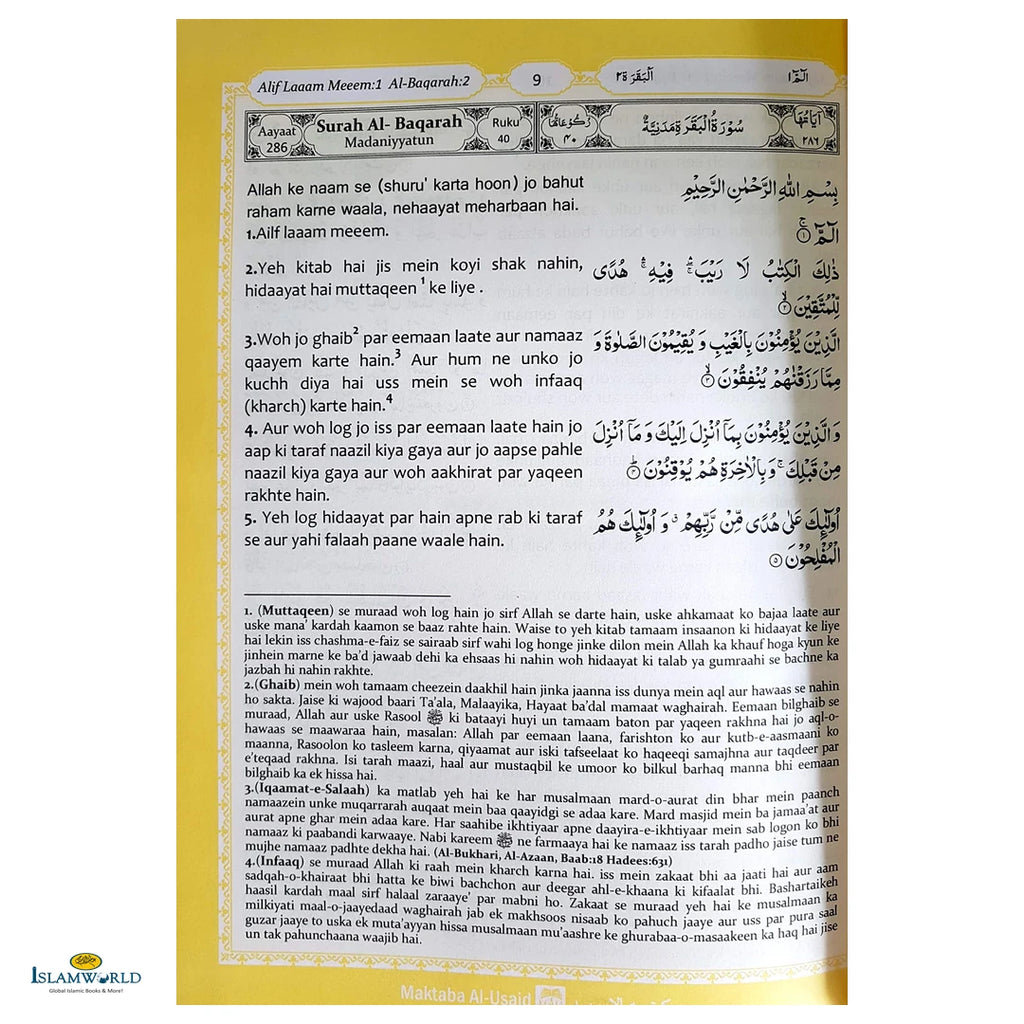 Alif Laaam Meeem:1 Al-Baqarah:2
9
اَلْبَقَرَة ٢
الٓمّٓ ١
Aayaat
286
Surah Al- Baqarah
Madaniyyatun
Ruku'
40
رُكُوْعَاتُهَا
٤٠
سُوْرَةُ الْبَقَرَةِ مَدَنِيَّةٌ
اٰيَاتُهَا
٢٨٦
Allah ke naam se (shuru' karta hoon) jo bahut
raham karne waala, nehaayat meharbaan hai.
1.Ailf laaam meeem.
2.Yeh kitab hai jis mein koyi shak nahin,
hidaayat hai muttaqeen ¹ ke liye .
3.Woh jo ghaib² par eemaan laate aur namaaz
qaayem karte hain.³ Aur hum ne unko jo
kuchh diya hai uss mein se woh infaaq
(kharch) karte hain.⁴
4. Aur woh log jo iss par eemaan laate hain jo
aap ki taraf naazil kiya gaya aur jo aapse pahle
naazil kiya gaya aur woh aakhirat par yaqeen
rakhte hain.
5. Yeh log hidaayat par hain apne rab ki taraf
se aur yahi falaah paane waale hain.
بِسْمِ اللّٰهِ الرَّحْمٰنِ الرَّحِيْمِ
الٓمّٓ ۚ﴿١﴾
ذٰلِكَ الْكِتٰبُ لَا رَيْبَ ۛ فِيْهِ ۛ هُدًى
لِّلْمُتَّقِيْنَ ۙ﴿٢﴾
الَّذِيْنَ يُؤْمِنُوْنَ بِالْغَيْبِ وَ يُقِيْمُوْنَ الصَّلٰوةَ وَ
مِمَّا رَزَقْنٰهُمْ يُنْفِقُوْنَ ۙ﴿٣﴾
وَ الَّذِيْنَ يُؤْمِنُوْنَ بِمَاۤ اُنْزِلَ اِلَيْكَ وَ مَاۤ اُنْزِلَ
مِنْ قَبْلِكَ ۚ وَ بِالْاٰخِرَةِ هُمْ يُوْقِنُوْنَ ؕ﴿٤﴾
اُولٰٓئِكَ عَلٰى هُدًى مِّنْ رَّبِّهِمْ ۗ وَ اُولٰٓئِكَ هُمُ
الْمُفْلِحُوْنَ ﴿٥﴾
1. (Muttaqeen) se muraad woh log hain jo sirf Allah se darte hain, uske ahkamaat ko bajaa laate aur
uske mana' kardah kaamon se baaz rahte hain. Waise to yeh kitab tamaam insaanon ki hidaayat ke liye
hai lekin iss chashma-e-faiz se sairaab sirf wahi log honge jinke dilon mein Allah ka khauf hoga kyun ke
jinhein marne ke ba'd jawaab dehi ka ehsaas hi nahin woh hidaayat ki talab ya gumraahi se bachne ka
jazbah hi nahin rakhte.
2.(Ghaib) mein woh tamaam cheezein daakhil hain jinka jaanna iss dunya mein aql aur hawaas se nahin
ho sakta. Jaise ki wajood baari Ta'ala, Malaayika, Hayaat ba'dal mamaat waghairah. Eemaan bilghaib se
muraad, Allah aur uske Rasool ﷺ ki bataayi huyi un tamaam baton par yaqeen rakhna hai jo aql-o-
hawaas se maawaraa hain, masalan: Allah par eemaan laana, farishton ko aur kutb-e-aasmaani ko
maanna, Rasoolon ko tasleem karna, qiyaamat aur iski tafseelaat ko haqeeqi samajhna aur taqdeer par
e'teqaad rakhna. Isi tarah maazi, haal aur mustaqbil ke umoor ko bilkul barhaq manna bhi eemaan
bilghaib ka ek hissa hai.
3.(Iqaamat-e-Salaah) ka matlab yeh hai ke har musalmaan mard-o-aurat din bhar mein paanch
namaazein unke muqarrarah auqaat mein baa qaayidgi se adaa kare. Mard masjid mein ba jamaa'at aur
aurat apne ghar mein adaa kare. Har saahibe ikhtiyaar apne daayira-e-ikhtiyaar mein sab logon ko bhi
namaaz ki paabandi karwaaye. Nabi kareem ﷺ ne farmaaya hai ke namaaz iss tarah padho jaise tum ne
mujhe namaaz padhte dekha hai. (Al-Bukhari, Al-Azaan, Baab:18 Hadees:631)
4.(Infaaq) se muraad Allah ki raah mein kharch karna hai. iss mein zakaat bhi aa jaati hai aur aam
sadqah-o-khairaat bhi hatta ke biwi bachchon aur deegar ahl-e-khaana ki kifaalat bhi. Bashartaikeh
haasil kardah maal sirf halaal zaraaye' par mabni ho. Zakaat se muraad yeh hai ke musalmaan ka
milkiyati maal-o-jaayedaad waghairah jab ek makhsoos nisaab ko pahuch jaaye aur uss par pura saal
guzar jaaye to uska ek muta'ayyan hissa musalmaan mu'aashre ke ghurabaa-o-masaakeen ka haq hai jise
un tak pahunchaana waajib hai.
Maktaba Al-Usaid
ISLAMWORLD
Global Islamic Books & More!!